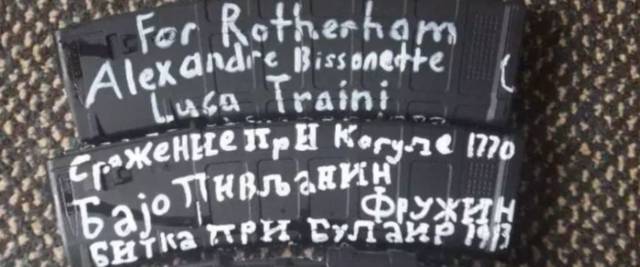 For Rotherham
Alexandre Bissonette
Luca Traini
Сражение при Кагуле 1770
Бајо Пивљанин
Фружин
Битка при Булаир 1913